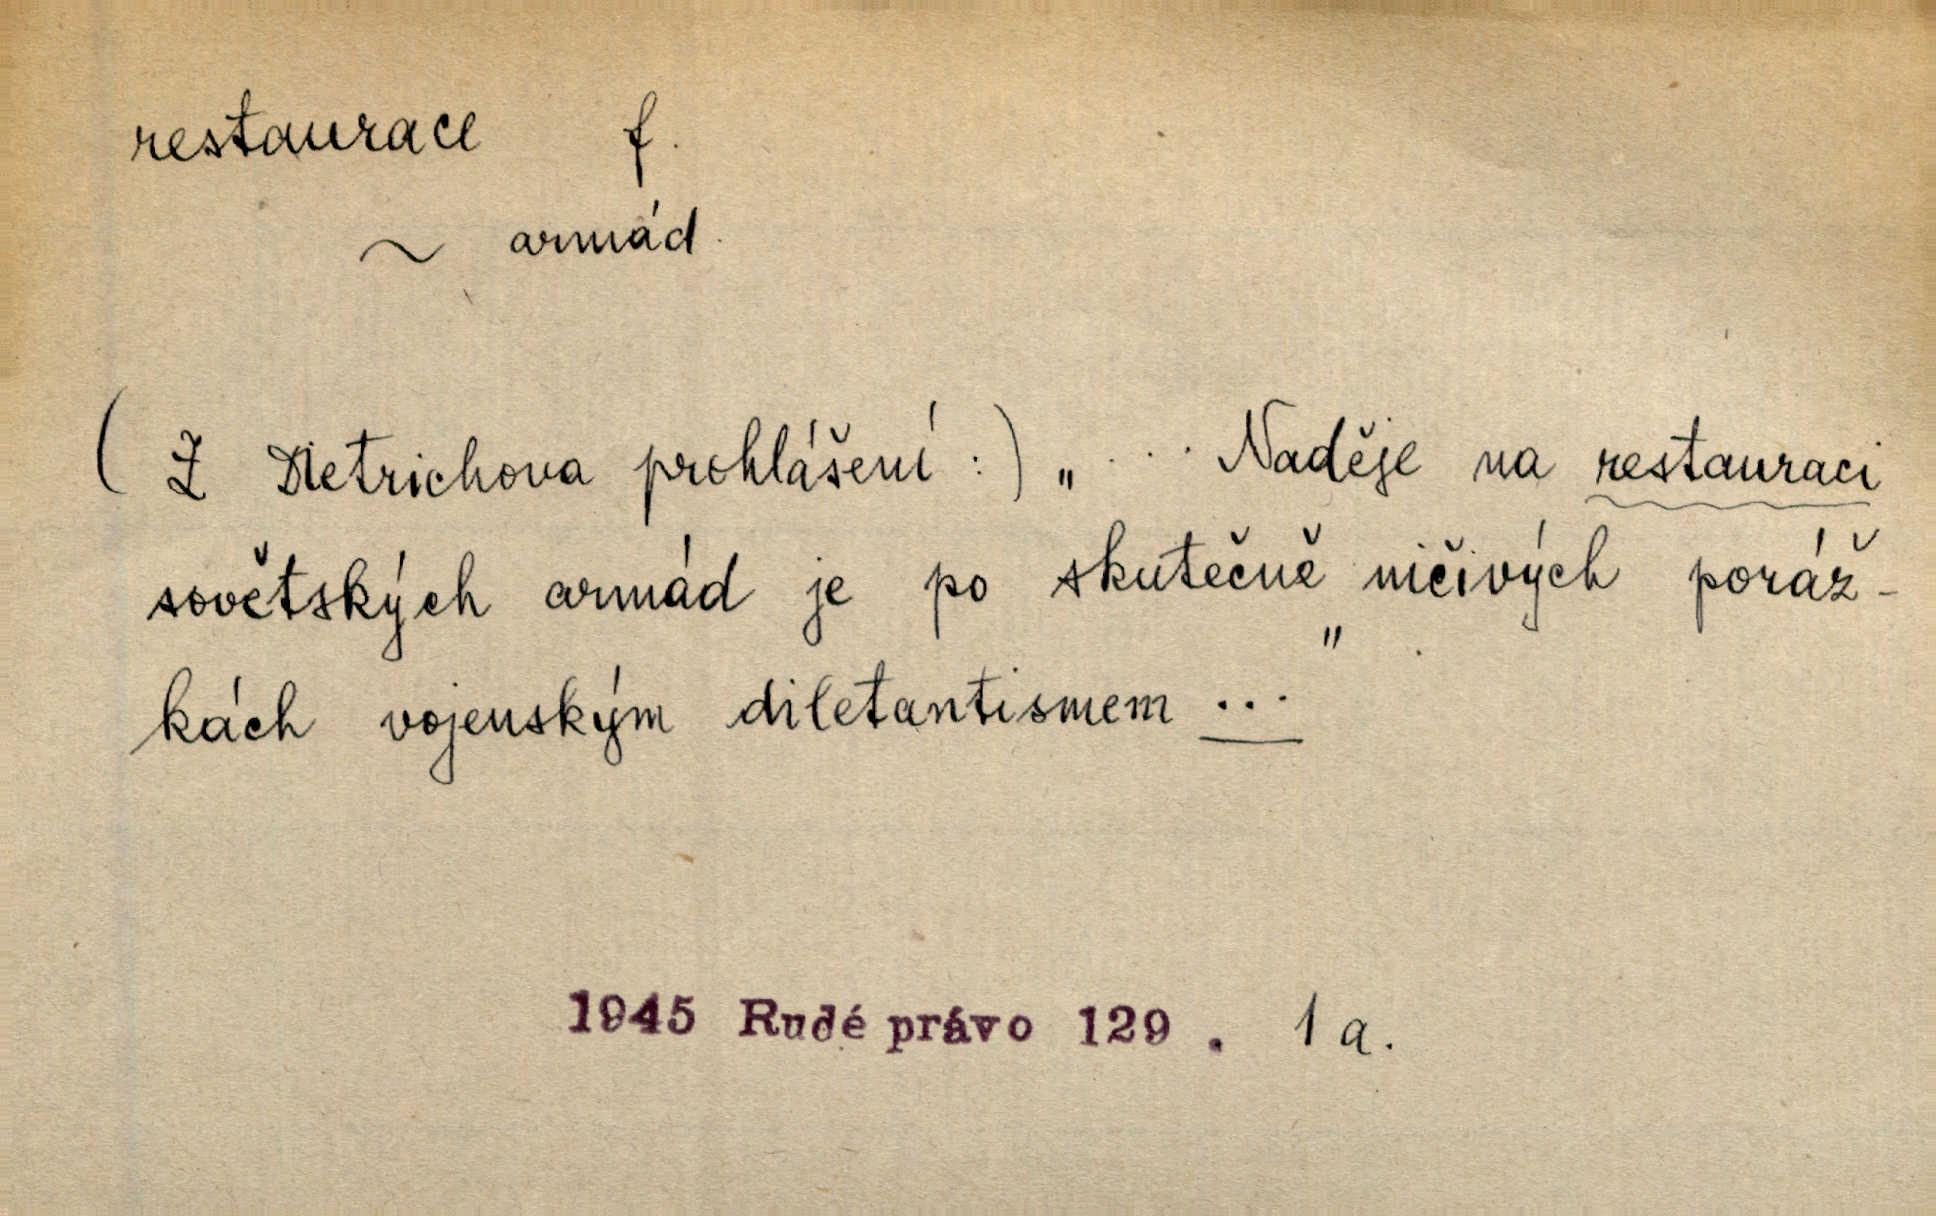 restaurace f.
~ armád.
( Z Dietrichova prohlášení :) „ ... Naděje na restauraci
sovětských armád je po skutečně ničivých poráž-
kách vojenským diletantismem ..."
1945 Rudé právo 129 . 1 a.